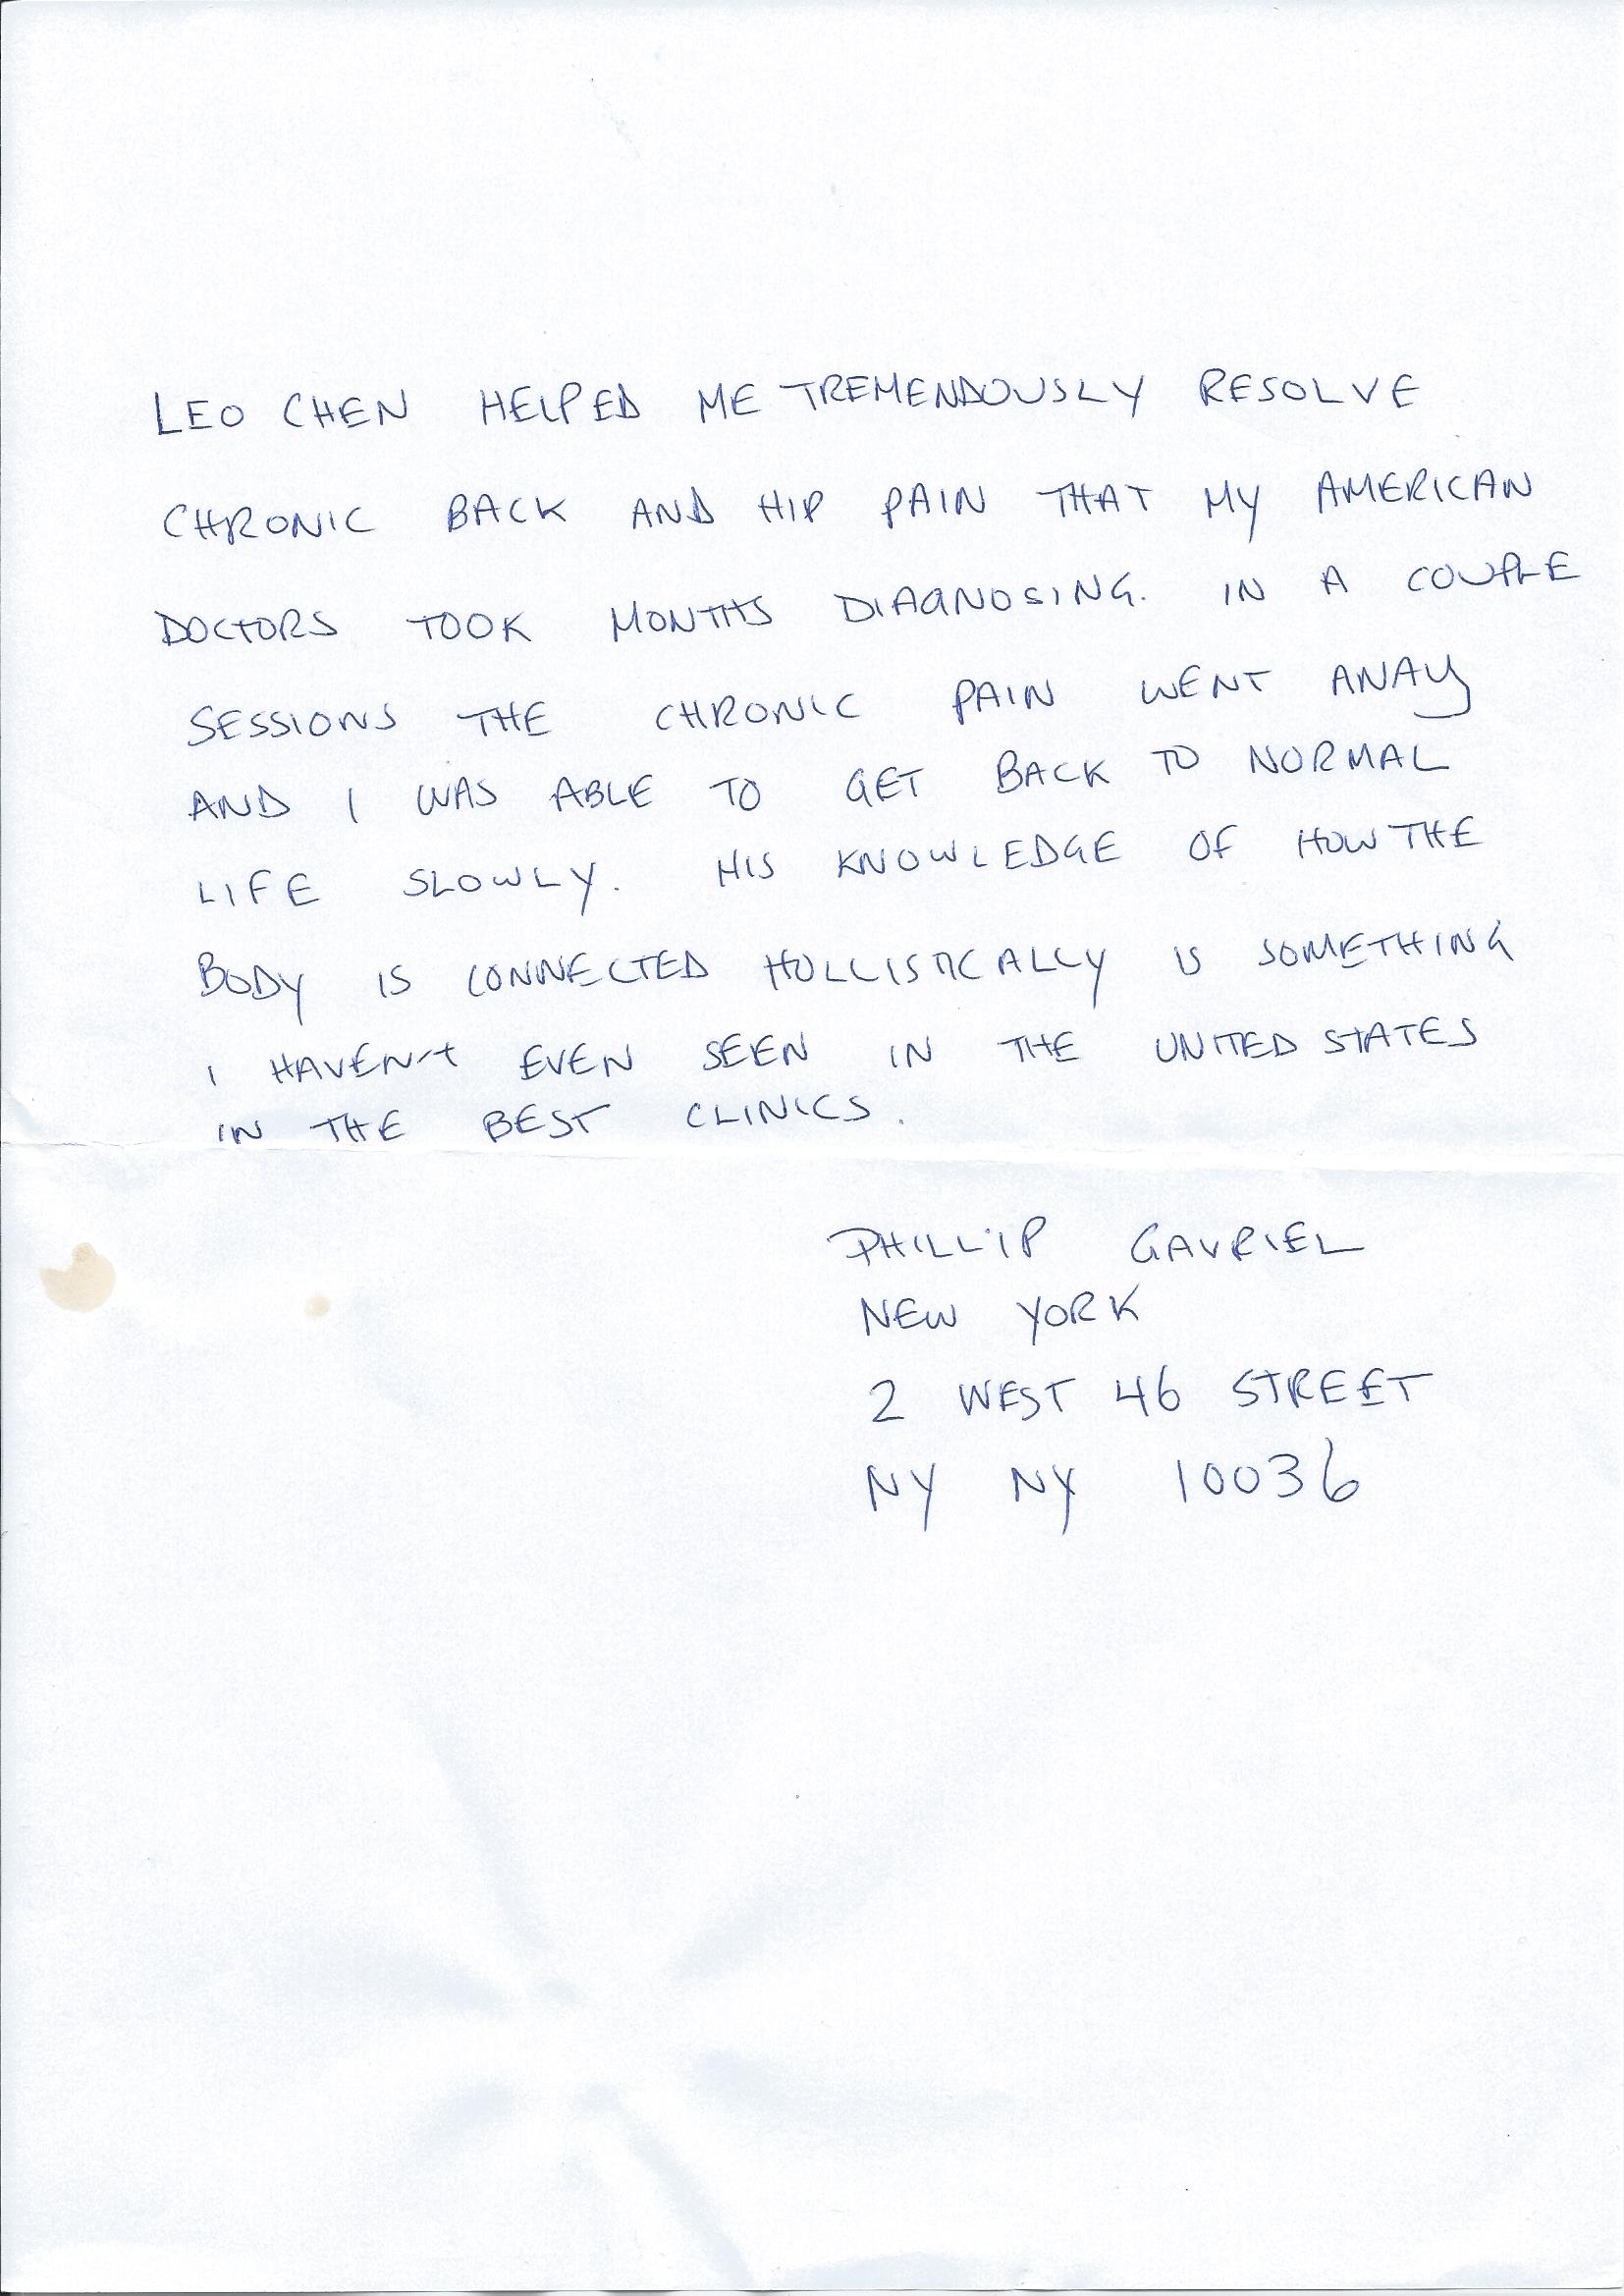 LEO CHEN HELPED ME TREMENDOUSLY RESOLVE
CHRONIC BACK AND HIP PAIN THAT MY AMERICAN
DOCTORS TOOK MONTHS DIAGNOSING. IN A COUPLE
SESSIONS THE CHRONIC PAIN WENT AWAY
AND I WAS ABLE TO GET BACK TO NORMAL
LIFE SLOWLY. HIS KNOWLEDGE OF HOW THE
BODY IS CONNECTED HOLLISTICALLY IS SOMETHING
I HAVEN't EVEN SEEN IN THE UNITED STATES
IN THE BEST CLINICS.
PHILLIP GAVRIEL
NEW YORK
2 WEST 46 STREET
NY NY 10036